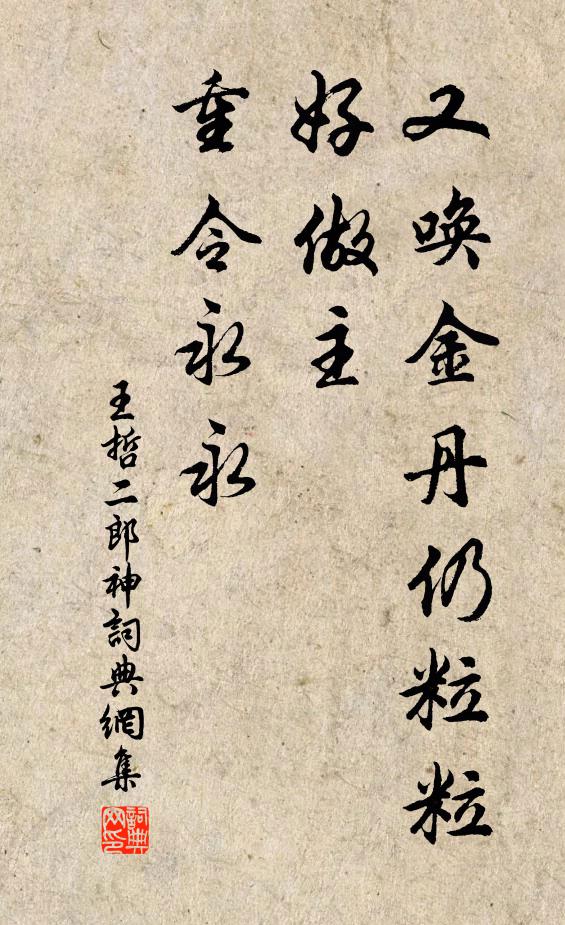 又唤金丹仍粒粒
好做主
重令永永
王哲二郎神詞典網集
詞典网印